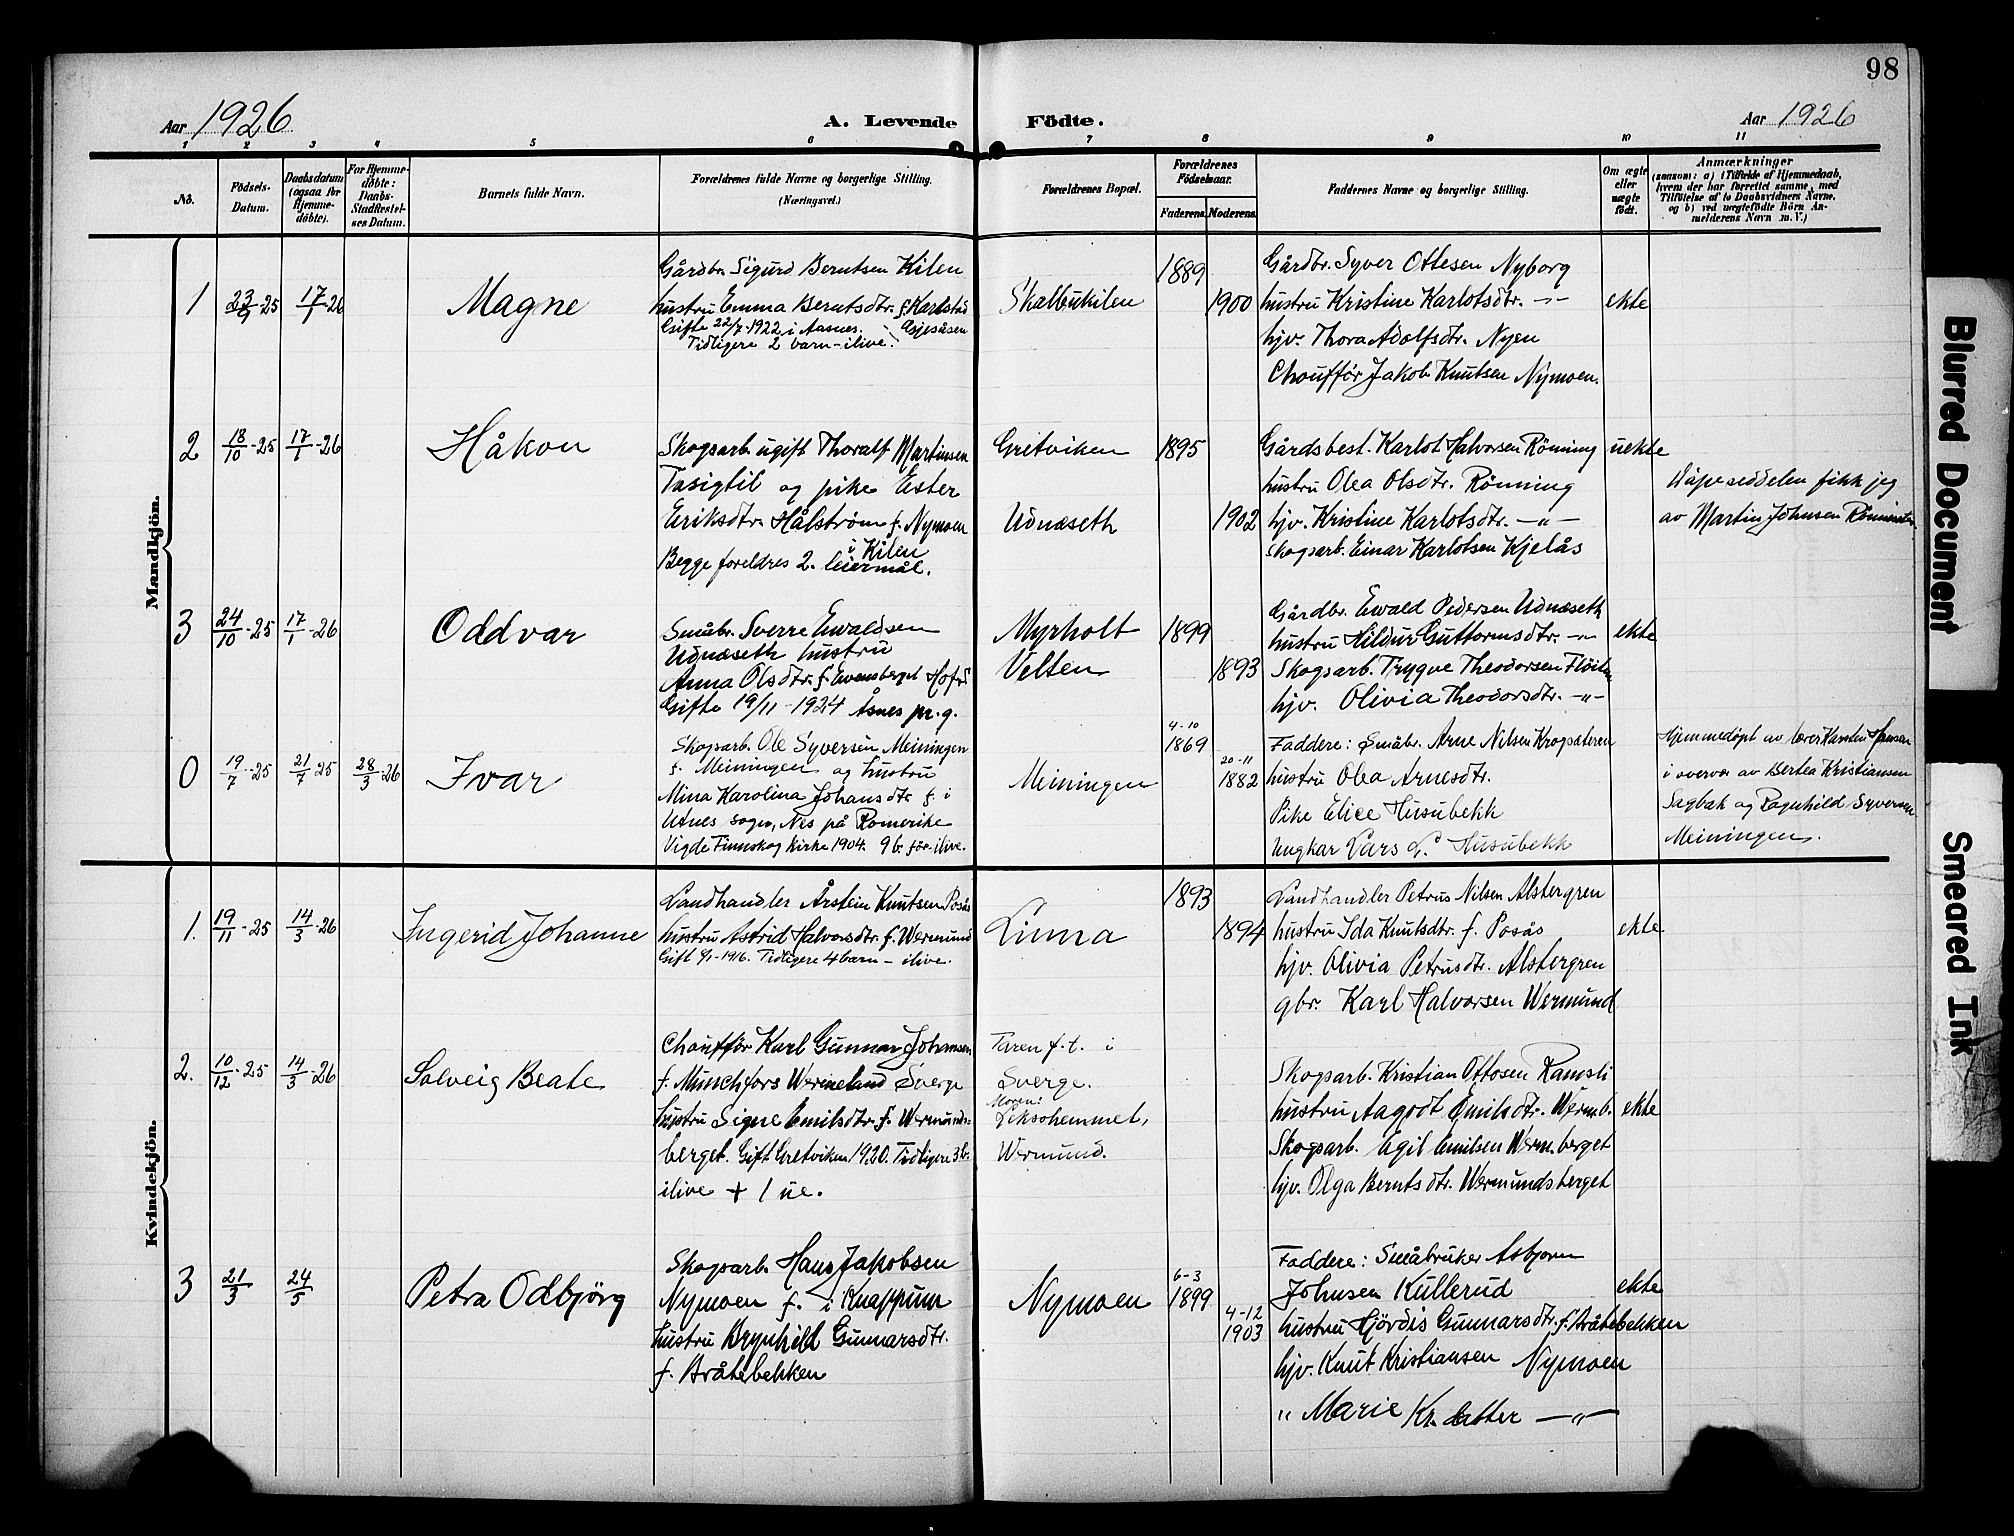 98
Aar 1926
A. Levende Födte.
Aar 1926
1 2 3 4 5 6 7 8 9 10 11
No.
Födsels-Datum.
Daabsdatum (ogsaa for Hjemme-döbte).
For Hjemme-döbte: Daabs-Stadfæstel-ses Datum.
Barnets fulde Navn.
Forældrenes fulde Navne og borgerlige Stilling. (Næringsvei.)
Forældrenes Bopæl.
Forældrenes Födselsaar.
Faderens. Moderens.
Faddernes Navne og borgerlige Stilling.
Om ægte eller uægte født.
Anmærkninger
(saasom: a) i Tilfælde af Hjemmedaab,
hvem der har forrettet samme, med
Tilföielse af to Daabsvidners Navne,
og b) ved uægtefödte Börn An-
melderens Navn m. V.)
Mandkjön.
1 25 17/1-26
Magne
Gårdbr. Sigurd Berntsen Kilen
hustru Emma Berntsdtr. f. Karlstad
Gifte 22/7-1922 i Aasnes.
Tidligere 2 barn-ilive.
Skalbukilen
1889
1900
Gårdbr. Syver Ottesen Nyborg
hustru Kristine Karlotsdtr. -"-
hjv. Thora Adolfsdtr. Nyen
Chouffør Jakob Knutsen Nymoen.
ekte
2 18/10-25 17/1-26
Håkon
Skogsarb. ugift Thoralf Martinsen
Tasigtil og pike Ester
Eriksdtr. Hålstrøm f. Nymoen
i Kilen
Begge foreldres 2. leiermål.
Gretviken
Udnæseth
1895
1902
Gårdsbest. Karlot Halvorsen Rönning
hustru Olea Olsdtr. Rönning
hjv. Kristine Karlotsdtr. -"-
Skogsarb. Einar Karlotsen Kjelås
uekte
Dåpsseddelen fikk jeg
av Martin Johnsen
3 24/10-25 17/1-26
Oddvar
Småbr. Sverre Ewaldsen
Udnæseth hustru
Anna Olsdtr. f. Evensberget Hof
Gifte 19/11-1924 Åsnes pr.g.
Myrholt
Velten
1899
1893
Gårdbr. Ewald Pedersen Udnæseth
hustru Hildur Guttormsdtr. -"-
Skogsarb. Trygve Theodorsen
hjv. Olivia Theodorsdtr. -"-
ekte
0 19/7-25 21/7-25 28/3-26
Ivar
Skogsarb. Ole Syversen Meiningen
f. Meiningen og hustru
Mina Karolina Johansdtr f. i
Utnes sogn, Nes på Romerike
Vigde Finnskog kirke 1904. 9 b. før ilive.
Meiningen
4-10
1869
20-11
1882
Faddere: Småbr. Arne Nilsen Krogsæteren
hustru Olea Arnesdtr.
Pike Elice Husubekk
Ungkar Lars L. Husubekk
Hjemmedöpt av lærer Karsten Hansen
i overvær av Bertea Kristiansen
Sagbak og Ragnhild Syversen
Meiningen.
Kvindekjön.
1. 19/11-25 14/3-26
Ingerid Johanne
Landhandler Årstein Knutsen Posås
hustru Astrid Halvorsdtr. f. Wermund
Gift 1916. Tidligere 4 barn - ilive.
Linna
1893
1894
Landhandler Petrus Nilsen Alstergren
hustru Ida Knutsdtr. f. Posås
hjv. Olivia Petrusdtr. Alstergren
gbr. Karl Halvorsen Wermund
ekte
2. 10/12-25 14/3-26
Solveig Beate
Chouffør Karl Gunnar Johansen
f. Munchfors Wermeland Sverge
hustru Signe Emilsdtr. f. Wermunds-
berget. Gift Gretviken 1920. Tidligere 3 b.
ilive + 1 ue.
Faren f.t. i
Sverge.
Moren:
Leksohemmet,
Wermund.
Skogsarb. Kristian Ottosen Ramsli
hustru Aagodt Emilsdtr. Wermb.
Skogsarb. Egil Emilsen Werm.berget
hjv. Olga Berntsdtr. Wermundsberget
ekte
3 21/3 24/5
Petra Odbjörg
Skogsarb. Hans Jakobsen
Nymoen f. i Knappum
hustru Brynhild Gunnarsdtr.
f. Bråtebekken
Nymoen
6-3
1899
4-12
1903
Faddere: Småbruker Asbjørn
Johnsen Kullerud
hustru Hjördis Gunnarsdtr. f. Bråtebekken
hjv. Knut Kristiansen Nymoen
" Marie Kr. datter -"-
ekte
Blurred Document
Smeared Ink